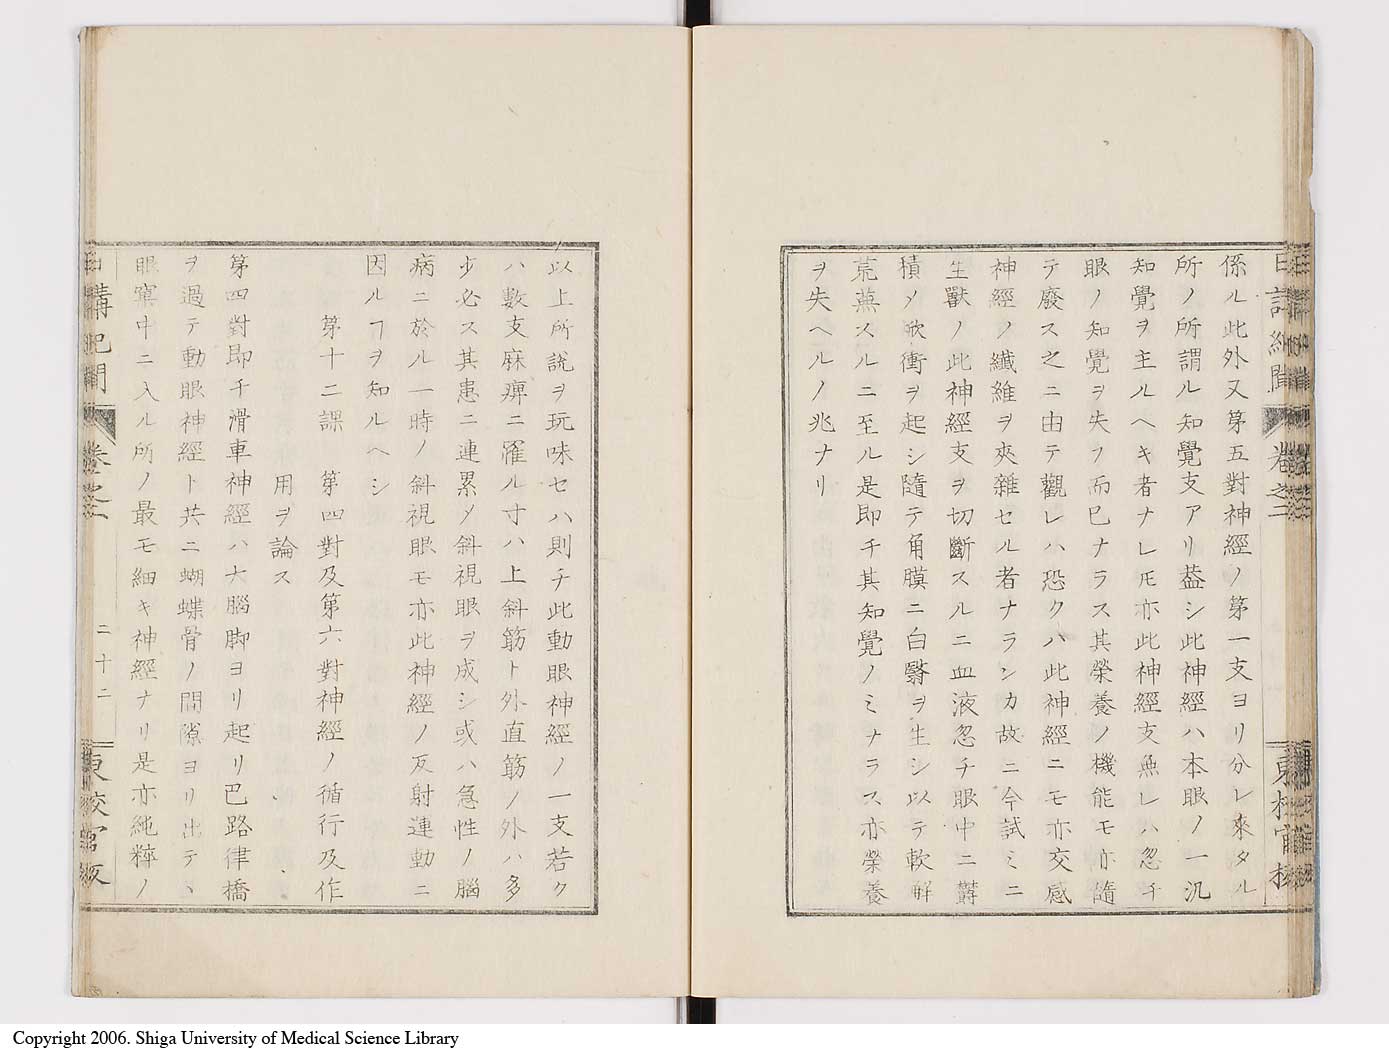 係ル此外又第五對神經ノ第一支ヨリ分レ來タル
所ノ所謂ル知覺支アリ葢シ此神經ハ本眼ノ一汎
知覺ヲ主ルヘキ者ナレ𪜈亦此神經支無レハ忽チ
眼ノ知覺ヲ失フ而已ナラス其榮養ノ機能モ亦隨
テ廢ス之ニ由テ觀レハ恐クハ此神經ニモ亦交感
神經ノ纖維ヲ夾雜セル者ナランカ故ニ今試ミニ
生獸ノ此神經支ヲ切斷スルニ血液忽チ眼中ニ欝
積〆焮衝ヲ起シ隨テ角膜ニ白翳ヲ生シ以テ軟解
荒蕪スルニ至ル是即チ其知覺ノミナラス亦榮養
ヲ失ヘルノ兆ナリ
卷之二
以上所說ヲ玩味セハ則チ此動眼神經ノ一支若ク
ハ數支麻痺ニ罹ル寸ハ上斜筋ト外直筋ノ外ハ多
少必ス其患ニ連累〆斜視眼ヲ成シ或ハ急性ノ腦
病ニ於ル一時ノ斜視眼モ亦此神經ノ反射連動ニ
因ルヿヲ知ルヘシ
第十二課 第四對及第六對神經ノ循行及作
用ヲ論ス
第四對即チ滑車神經ハ大腦脚ヨリ起リ巴路律橋
ヲ過テ動眼神經ト共ニ蝴蝶骨ノ間隙ヨリ出テヽ
眼窠中ニ入ル所ノ最モ細キ神經ナリ是亦純粹ノ
日講記聞
二十二
Copyright 2006. Shiga University of Medical Science Library